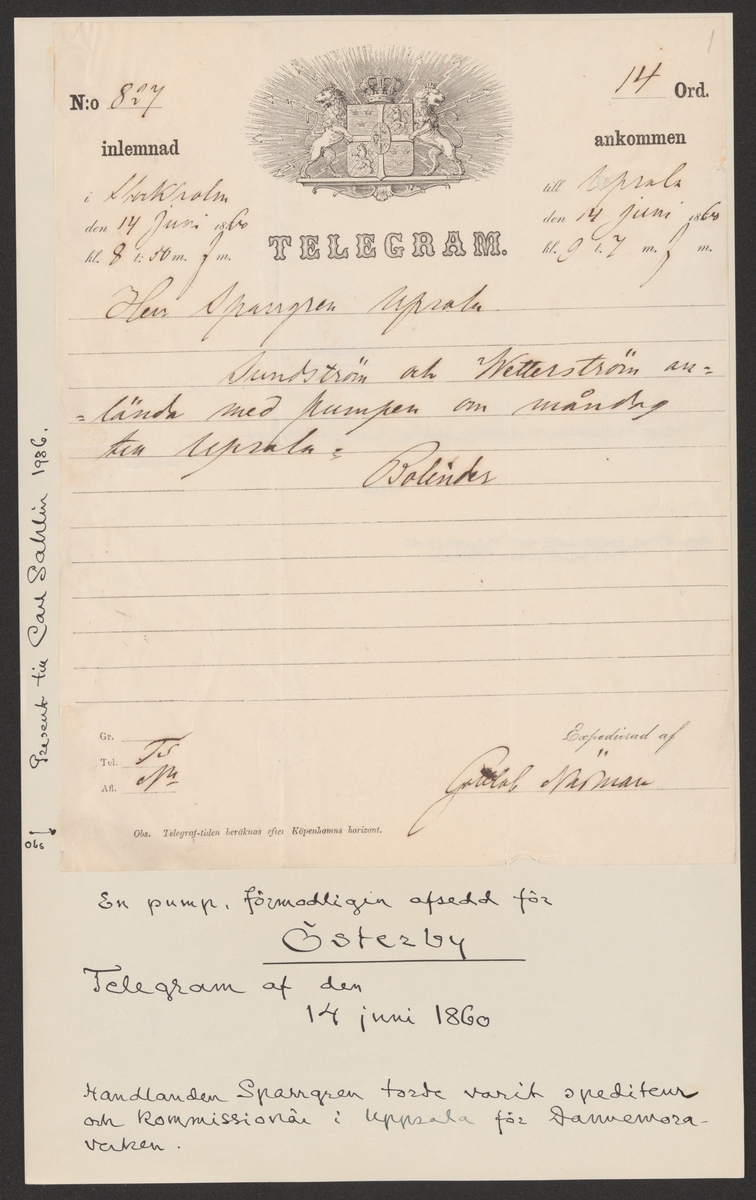 1
N:o 827
14 Ord.
inlemnad
ankommen
i Stockholm
till Upsala
den 14 Juni 1860
den 14 juni 1860
kl. 8 t: 50 m. f m.
kl. 9 t. 7 m. f m.
TELEGRAM.
Herr Sparrgren Upsala
Sundström och Wetterström an=
=lända med pumpen om måndag
till Upsala =
Bolinder
Gr.
Tel. Ts
Afl. Nn
Expedierad af
Gottlob Näsman
Obs. Telegraf-tiden beräknas efter Köpenhamns horizont.
Present till Carl Sahlin 1936.
Obs
En pump, förmodligin afsedd för
Österby
Telegram af den
14 juni 1860
Handlanden Sparrgren torde varit spediteur
och kommissionär i Uppsala för Dannemora-
verken.